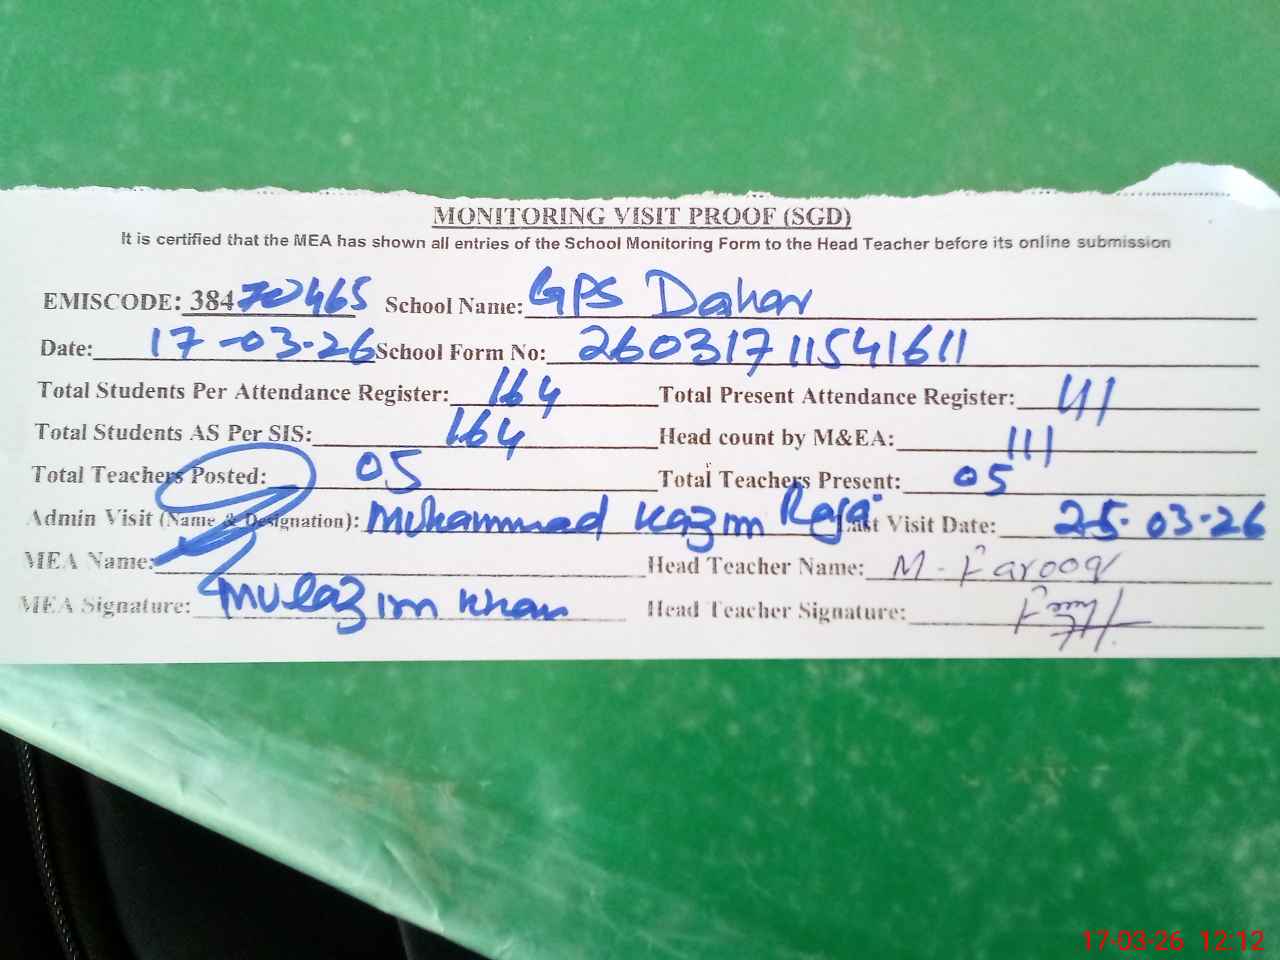 MONITORING VISIT PROOF (SGD)
It is certified that the MEA has shown all entries of the School Monitoring Form to the Head Teacher before its online submission
EMISCODE: 38470465 School Name: GPS Dahar
Date: 17-03-26 School Form No: 26031711541611
Total Students Per Attendance Register: 164 Total Present Attendance Register: 111
Total Students AS Per SIS: 164 Head count by M&EA: 111
Total Teachers Posted: 05 Total Teachers Present: 05
Admin Visit (Name & Designation): Muhammad Kazim Raza Last Visit Date: 25-03-26
MEA Name: Head Teacher Name: M-Farooq
MEA Signature: Mulazim Khan Head Teacher Signature:
17-03-26 12:12